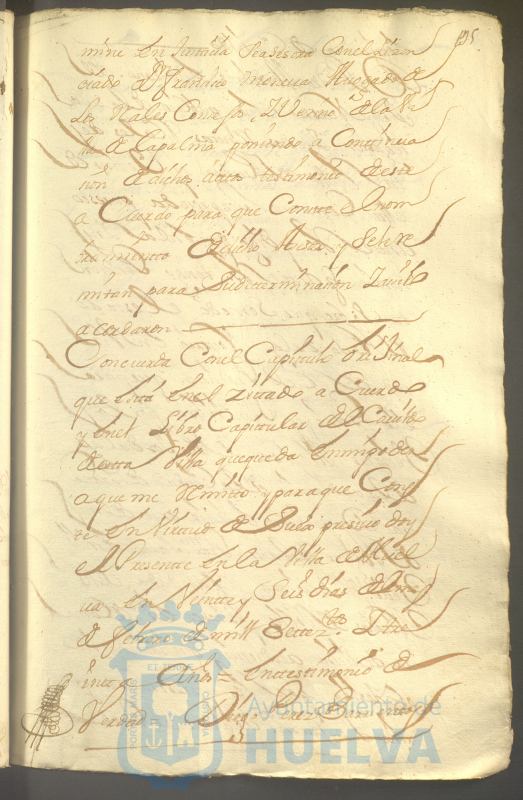 135
mine en Justicia Peasesora Conel Lizen
ciado Dn. Francisco Mencia Abogado de
los Rales Consejos, Y Vezino de la Vi
lla de Lapalma poniendo a Continua
sion de dichos autos testimonio de este
a Cuerdo para que Conste el nom
bramiento de dicho Asesor y Sele re
mitan para Su determinazion Y assi lo
acordaron
Concuerda Con el Capitulo Orijinal
que esta En el Zitado a Cuerdo
y En el Libro Capitular del Cavildo
de esta Villa que queda En mi poder
a que me Remito, y para que Cons
te En Virtud de lo preveido doy
el Presente En la Villa de Huel
va En Veinte y Seis dias del mes
de febrero de mill Settezos. Y tre
inta Años = En testimonio de
Verdad Diego
EL TERRE
PORTUS MARIS
ET CUSTODIA
Ayuntamiento de
HUELVA